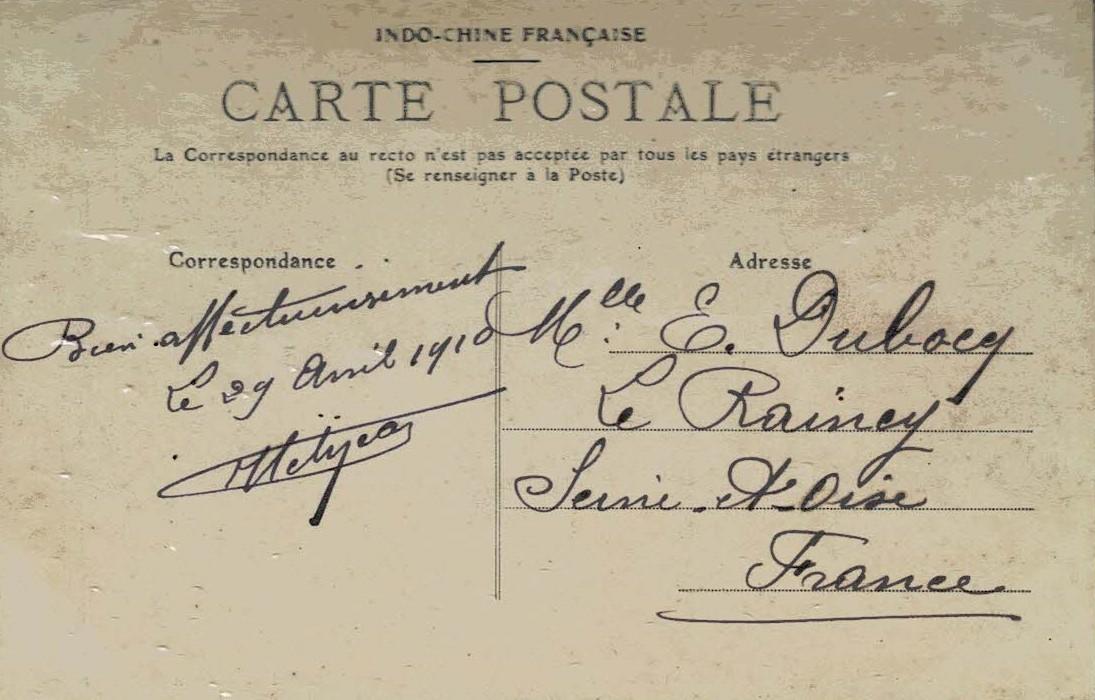 INDO-CHINE FRANÇAISE
CARTE POSTALE
La Correspondance au recto n'est pas acceptée par tous les pays étrangers
(Se renseigner à la Poste)
Correspondance
Bien affectueusement
Le 29 Avril 1910
Adresse
Mlle E. Dubocq
Le Raincy
Seine-et-Oise
France